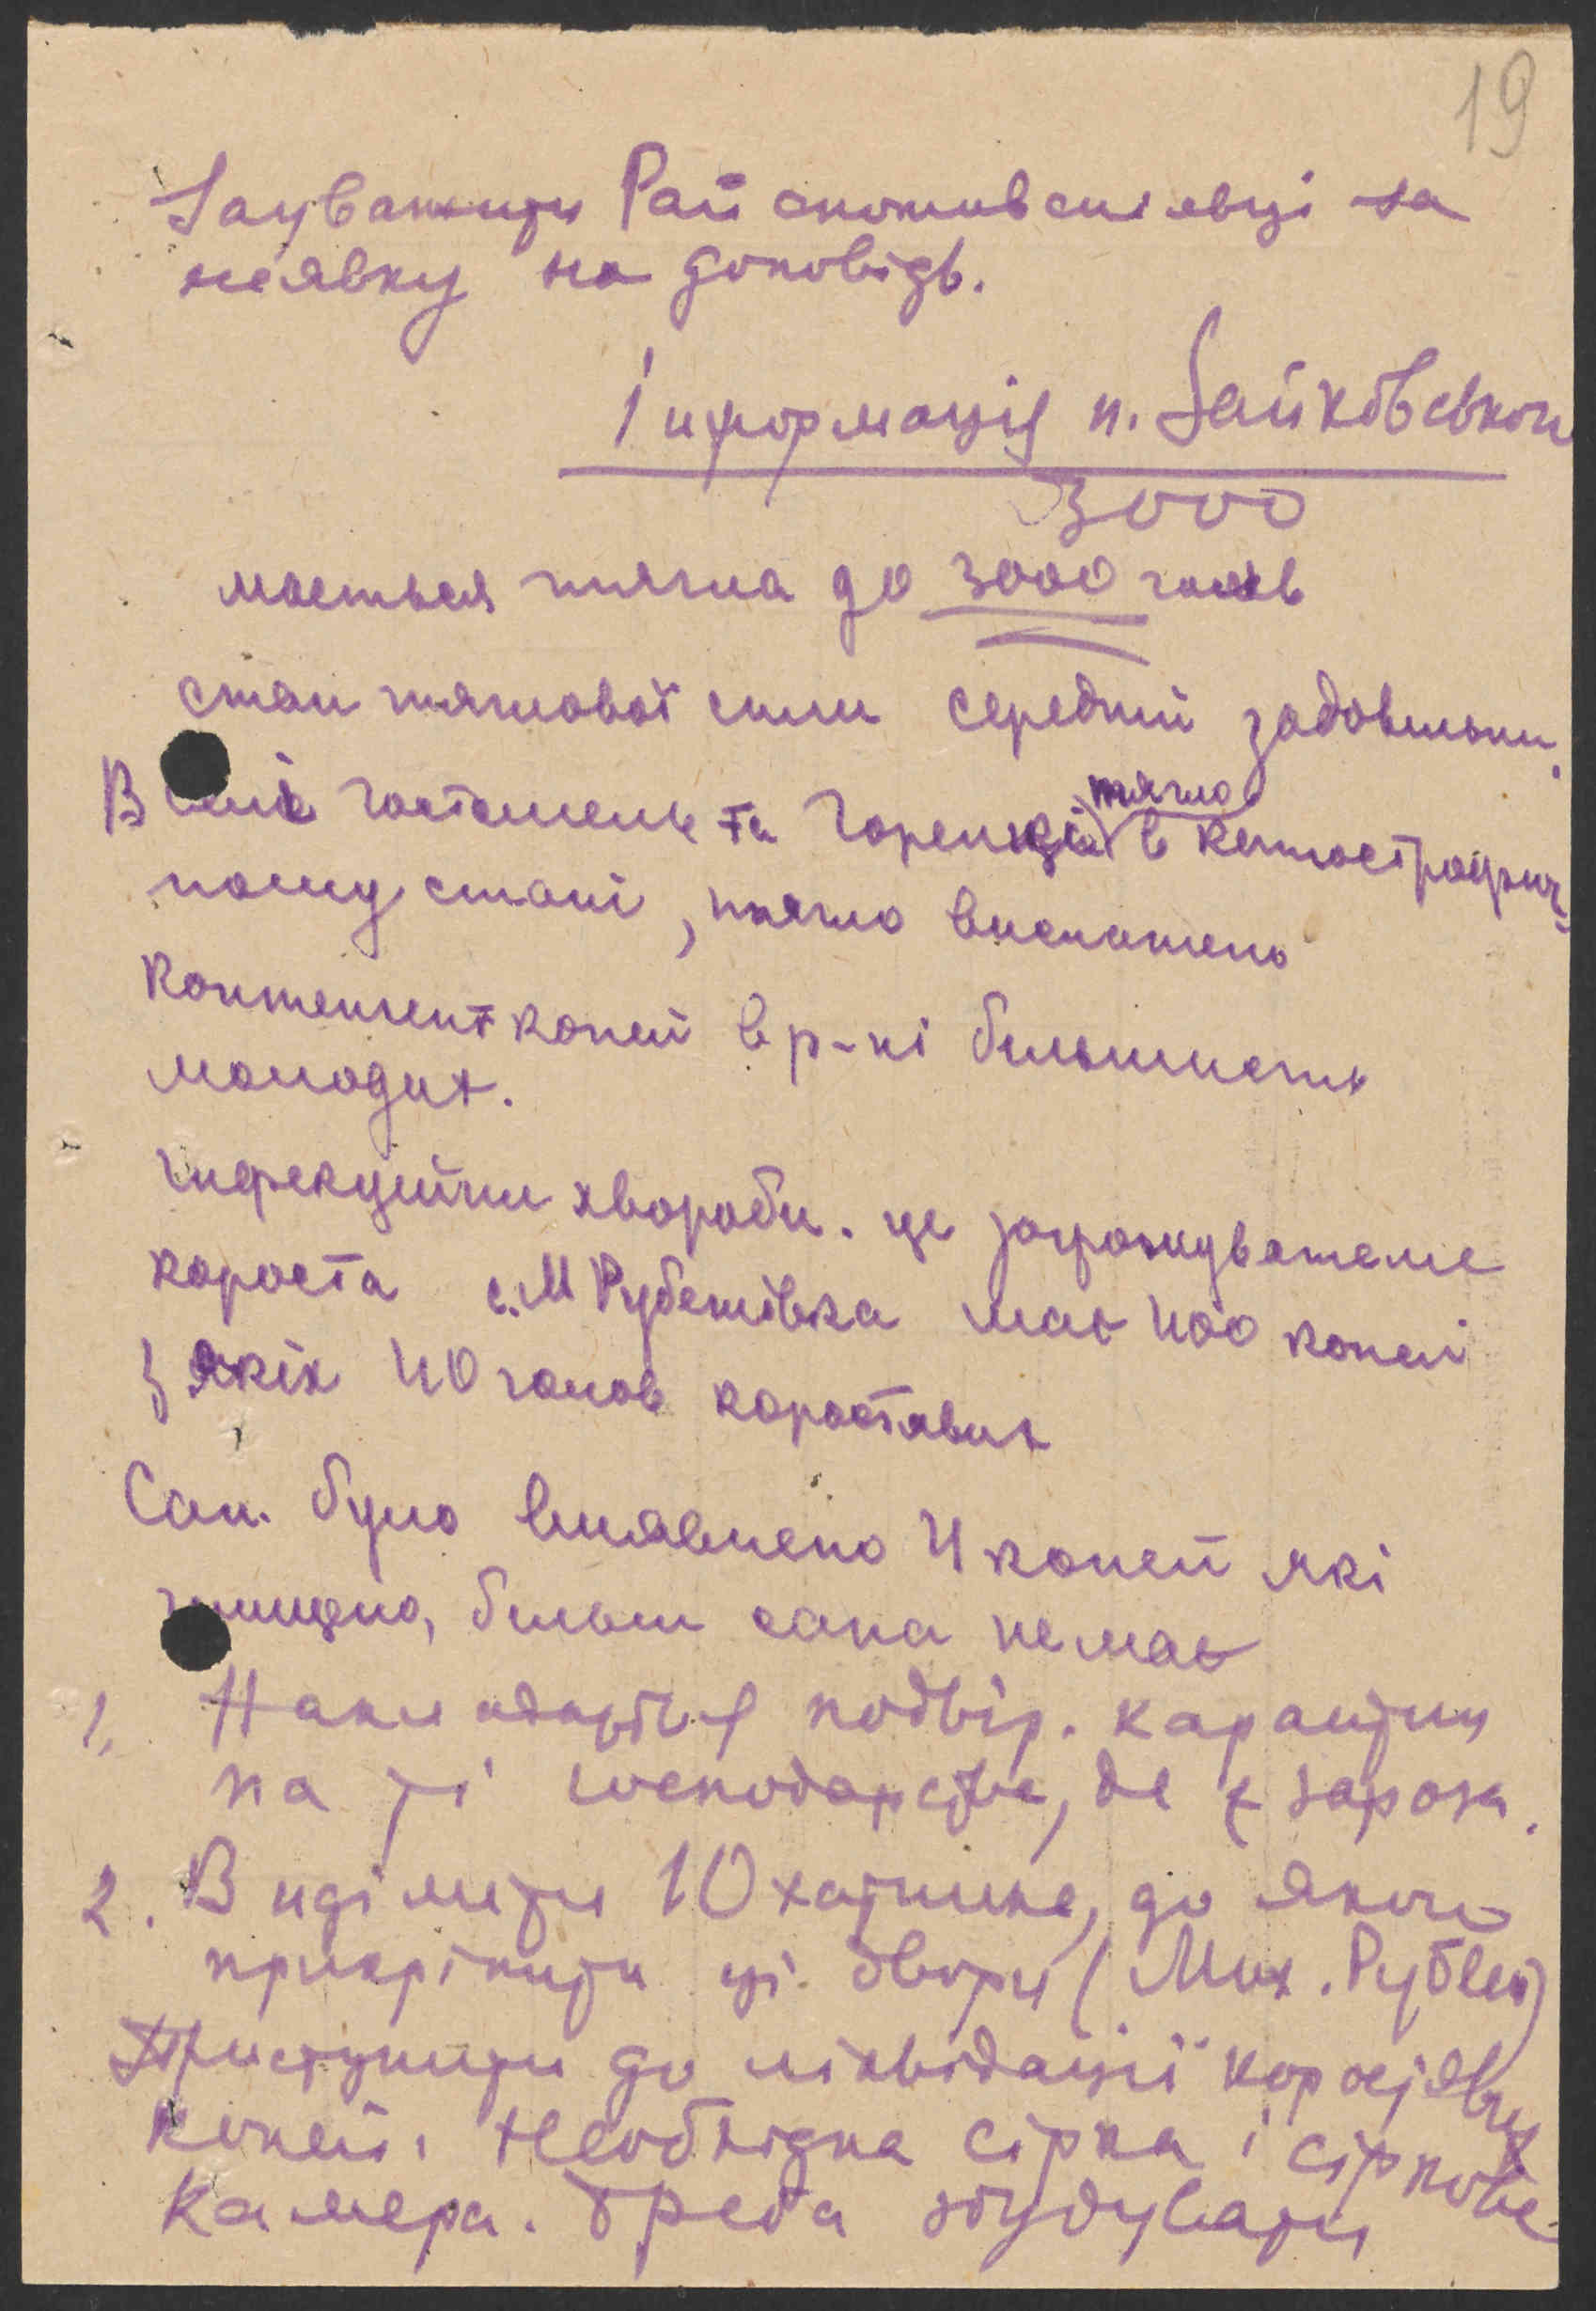 19
Зауважити Райспоживспілевці за
неявку на доповідь.
Інформація п. Зайковського
3000
мается тягла до 3000 голів
стан тяглової сили середній задовільни.
В селі Гостомель та Горенці тягло в катострофич-
ному стані, тягло виснажено
контенгент коней в р-ні більшисть
молодих.
інфекцийни хвороби. це
короста с. М Рубежівка має 400 коней
з якіх 40 голов коростявих
Сап. було виявлено 4 коней які
знищено, більш сапа немає
1. Накладається подвір. карантин
на ті господарства, де є зараза.
2. Виділити 10 хатника, до якого
прикріпити ці двори (Мих. Рубеж)
Приступити до ліквідації коростявих
коней. Необхідна сірка і сіркова
камера. Треба збудувати